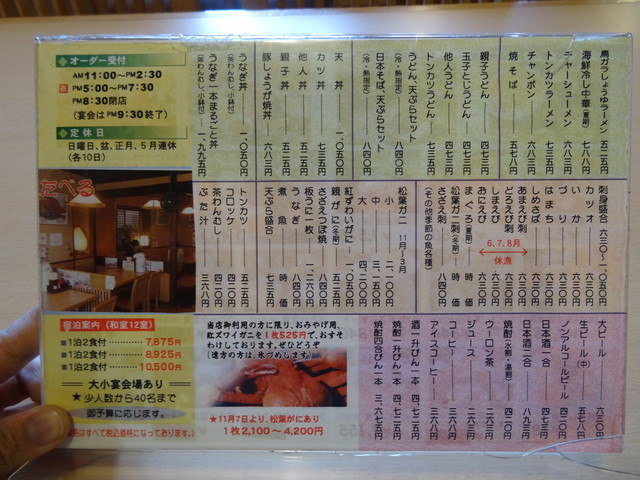 オーダー受付
AM11:00〜PM2:30
PM5:00〜PM7:30
PM8:30閉店
(宴会はPM9:30終了)
定休日
日曜日、盆、正月、5月連休
(各10日)
たべる
宿泊案内 (和室12室)
1泊2食付 7,875円
1泊2食付 8,925円
1泊2食付 10,500円
大小宴会場あり
★少人数から40名まで
御予算に応じます。
はすべて税込価格になっております。)
鳥ガラしょうゆラーメン 五二五円
海鮮冷し中華(夏期) 八四〇円
チャーシューメン 六八二円
トンカツラーメン 七三五円
チャンポン 六八三円
焼そば 五七八円
親子うどん 四七二円
玉子とじうどん 四七二円
他人うどん 四七二円
トンカツうどん 五二五円
うどん、天ぷらセット 八四〇円
(冷・熱指定)
日本そば、天ぷらセット 八四〇円
(冷・熱指定)
天丼 一、〇五〇円
カツ丼 七三五円
他人丼 五二五円
親子丼 五二五円
豚しょうが焼丼 六八三円
うなぎ丼 一、〇五〇円
(茶わんむし、小鉢付)
うなぎ一本まるごと丼 一、九九五円
(茶わんむし、小鉢付)
刺身盛合 六三〇〜一、〇五〇円
カツオ 六三〇円
いか 六三〇円
づり 六三〇円
はまち 六三〇円
しめさば 六三〇円
あまえび刺 六三〇円
どろえび刺
しまえび
おにえび
6.7.8月
休漁
まぐろ(夏期) 時価
松葉ガニ刺(冬期) 時価
さざえ刺 八四〇円
(その他季節の魚各種)
松葉ガニ 11月〜3月
小 二、一〇〇円
中 三、一五〇円
大 四、二〇〇円
紅ずわいガニ 一、〇五〇円
親がに(冬期) 五二五円
さざえつぼ焼 八四〇円
板うに一枚 一、二六〇円
うなぎ 一、二六〇円
煮魚 時価
天ぷら盛合 七三五円
トンカツ 五二五円
コロッケ 四二〇円
茶わんむし 四二〇円
ぶた汁 三六八円
大ビール 六三〇円
生ビール(中) 五七八円
ノンアルコールビール 四二〇円
日本酒一合 四二〇円
日本酒二合 八九三円
焼酎(水割・湯割) 四二〇円
ウーロン茶 三六八円
ジュース 三六八円
コーヒー 三六八円
アイスコーヒー 三六八円
酒一升びん一本 四、七二五円
焼酎一升びん一本 四、七二五円
焼酎四合びん一本 三、六七五円
当店御利用の方に限り、おみやげ用、
紅ズワイガニを1枚525円で、おすそ
わけしております。ぜひどうぞ
(遠方の方は、氷づめします)
★11月7日より、松葉がにあり
1枚2,100〜4,200円